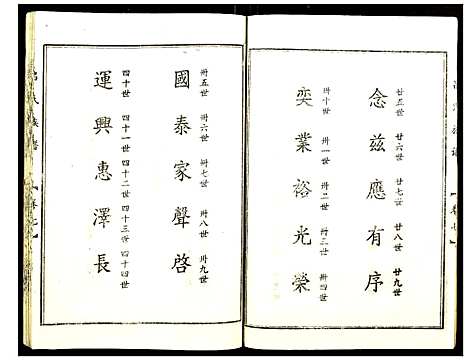 廿五世 廿六世 廿七世 廿八世 廿九世
念兹應有序
卅十世 卅一世 卅二世 卅三世 卅四世
奕業裕光榮
卅五世 卅六世 卅七世 卅八世 卅九世
國泰家聲啓
四十世 四十一世 四十二世 四十三世 四十四世
運興惠澤長